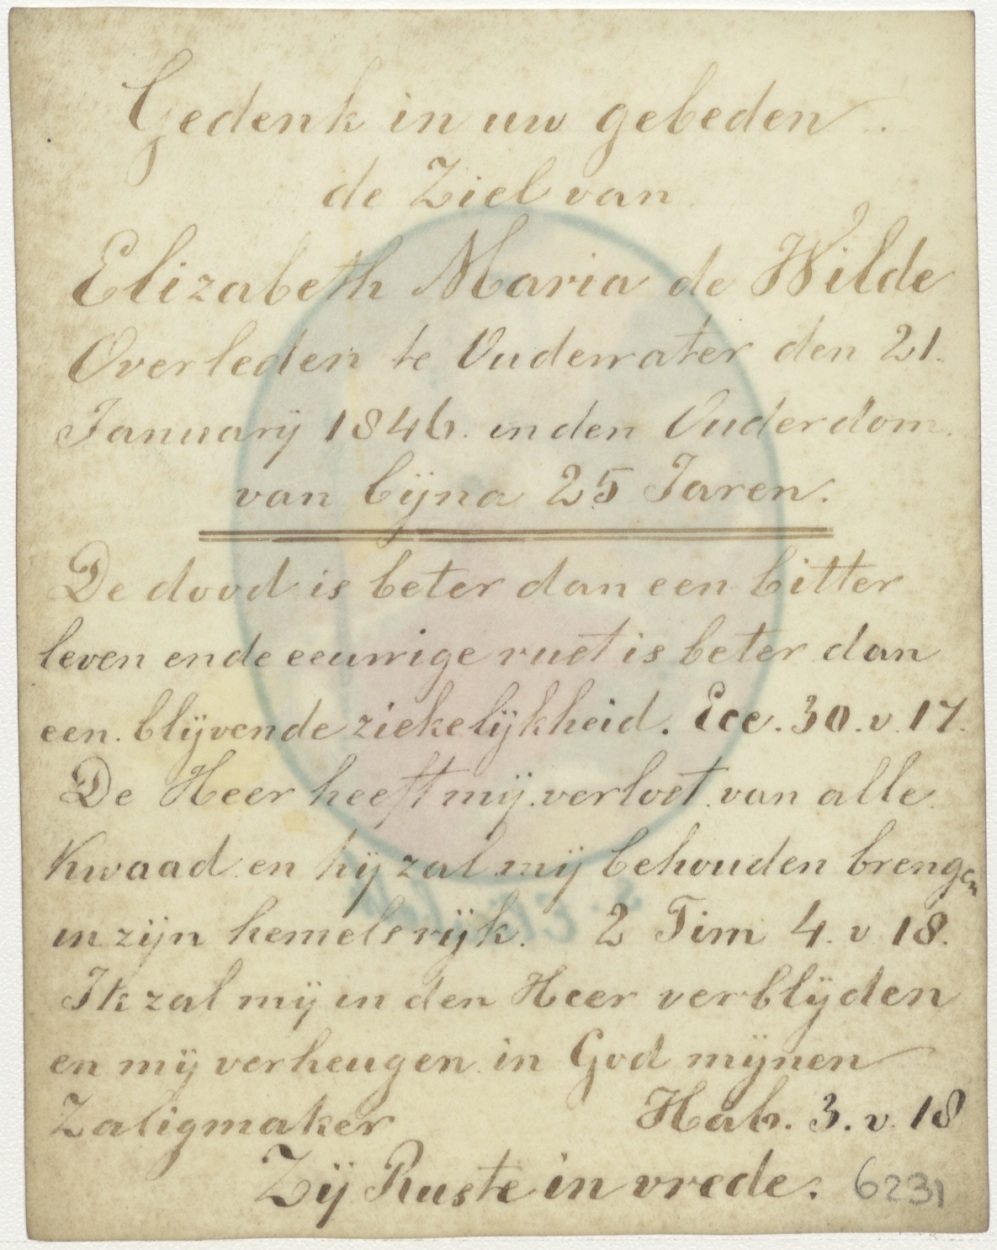 Gedenk in uw gebeden.
de Ziel van
Elizabeth Maria de Wilde
Overleden te Oudewater den 21.
Januarij 1846. in den Ouderdom.
van bijna 25 Jaren.
De dood is beter dan een bitter
leven en de eeuwige rust is beter dan
een blijvende ziekelijkheid. Ecc. 30. v. 17.
De Heer heeft mij verlost van alle
Kwaad en hij zal mij behouden brengen
in zijn hemelsrijk. 2 Tim 4. v 18.
Ik zal mij in den Heer verblijden
en mij verheugen in God mijnen
Zaligmaker Hab. 3. v. 18
Zij Ruste in vrede.
6231